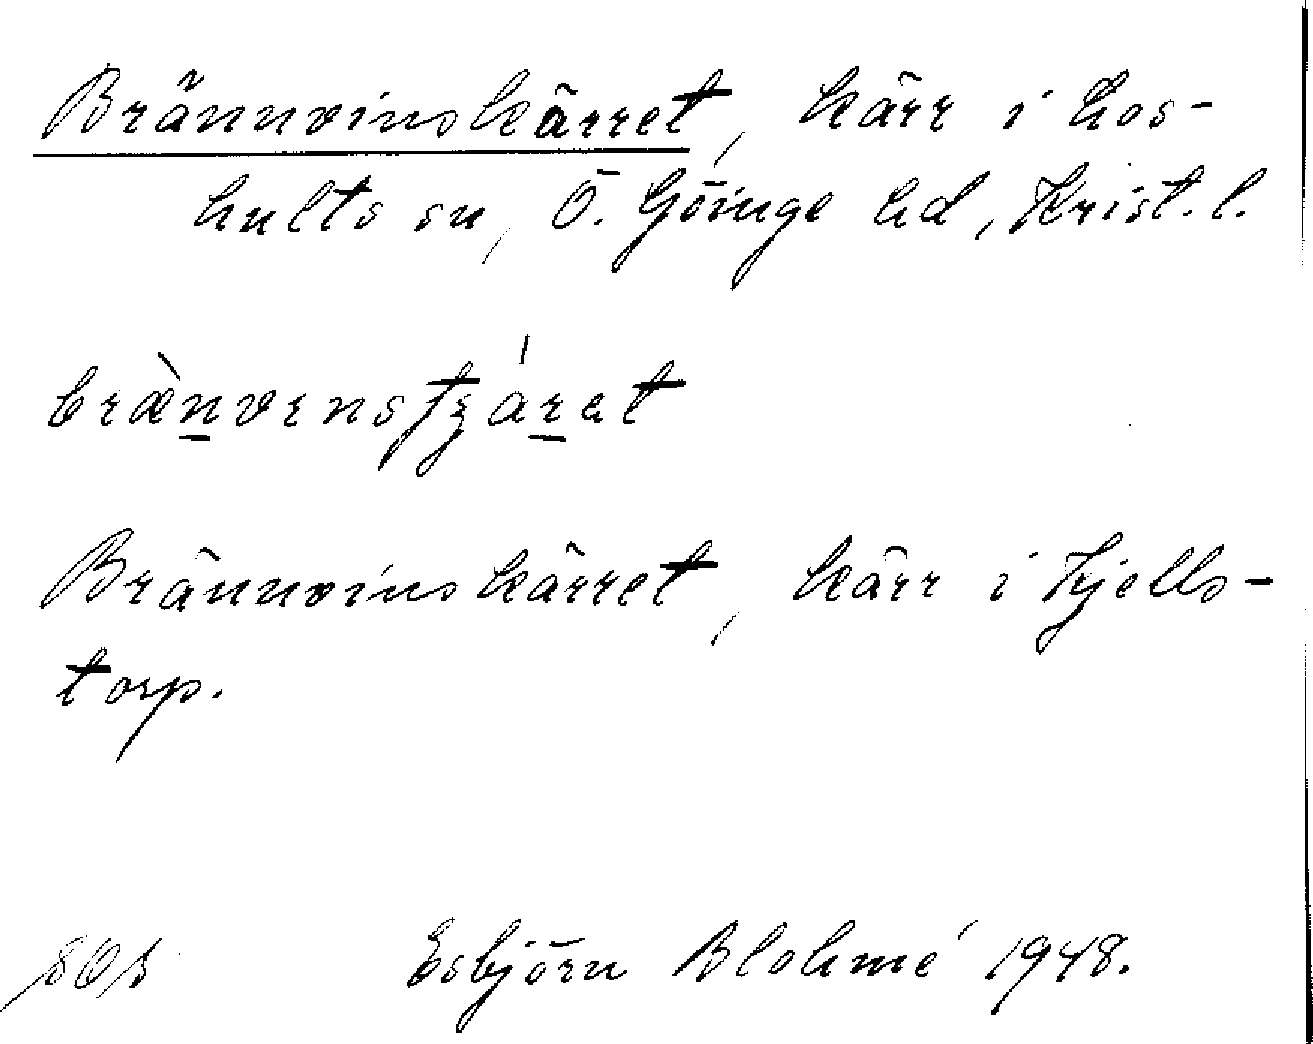 Brännvinskärret, kärr i Los-
hults sn, Ö. Göinge hd, Krist. l.
Brännvinskärret, kärr i Kjells-
torp.
Esbjörn Blohmé 1948.